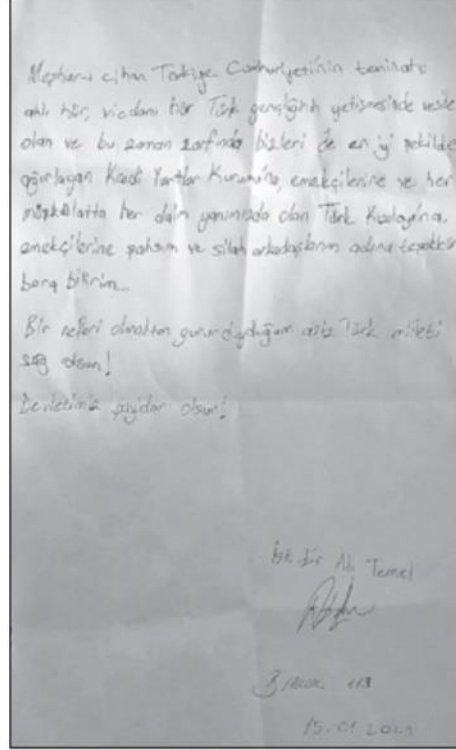 Meşher-i cihan Türkiye Cumhuriyeti'nin teminatı
aklı hür, vicdanı hür Türk gençliğinin yetişmesinde vesile
olan ve bu zaman zarfında bizleri de en iyi şekilde
ağırlayan Kredi Yurtlar Kurumu'na, emekçilerine ve her
müşkülatta her daim yanımızda olan Türk Kızılayı'na,
emekçilerine şahsım ve silah arkadaşlarım adına teşekkürü
borç bilirim...
Bir neferi olmaktan gurur duyduğum aziz Türk milleti
sağ olsun!
Devletimiz payidar olsun!
Ali Temel
B Blok 113
15.01.